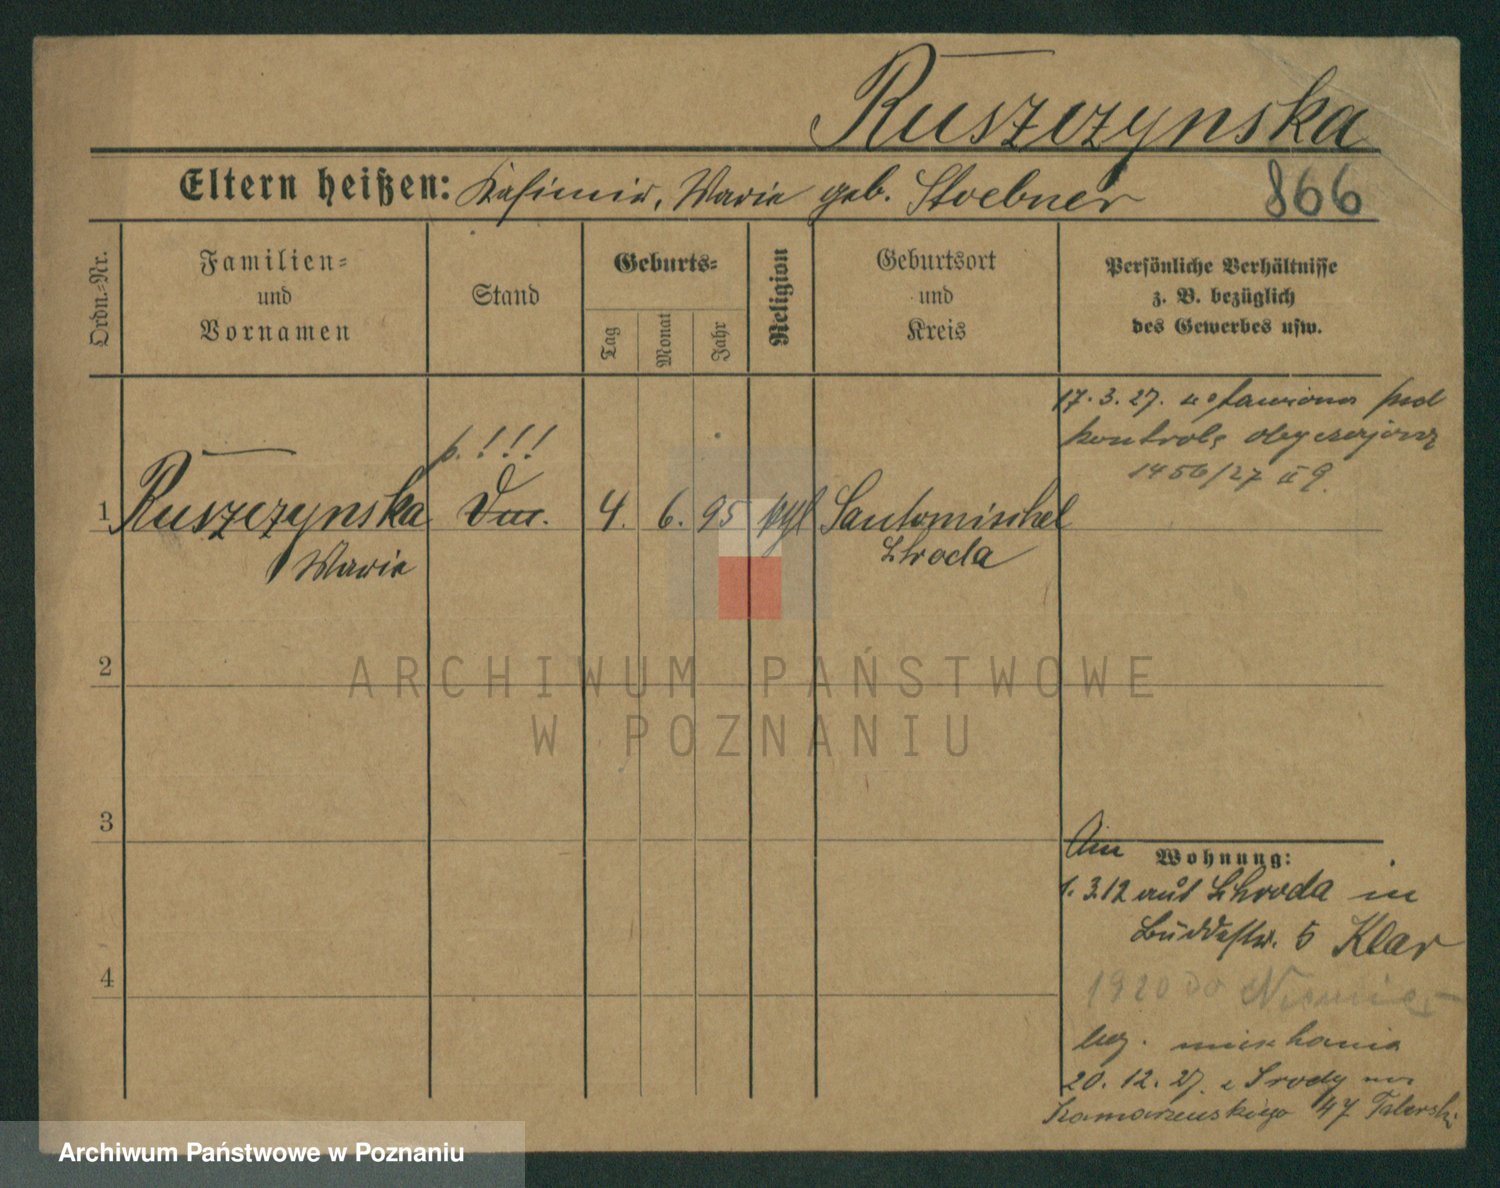 Ruszczynska
Eltern heißen: Kasimir, Marie geb. Stoebner 866
Ordn.-Nr.
Familien-
und
Vornamen
Stand
Geburts-
Tag
Monat
Jahr
Religion
Geburtsort
und
Kreis
Persönliche Verhältnisse
z. B. bezüglich
des Gewerbes usw.
17. 3. 27. pod
kontrolę obyczajową
1456/27
p. !!!
1 Ruszczynska 4. 6. 95 Santomischel
Marie Schroda
2
3
4
Wohnung:
1. 3.12 aus Schroda in
Buddestr. 5 Klar
1920 do Niemiec
bez. mieszkania
20. 12. 27. z Środy na
47
ARCHIWUM PAŃSTWOWE
W POZNANIU
Archiwum Państwowe w Poznaniu